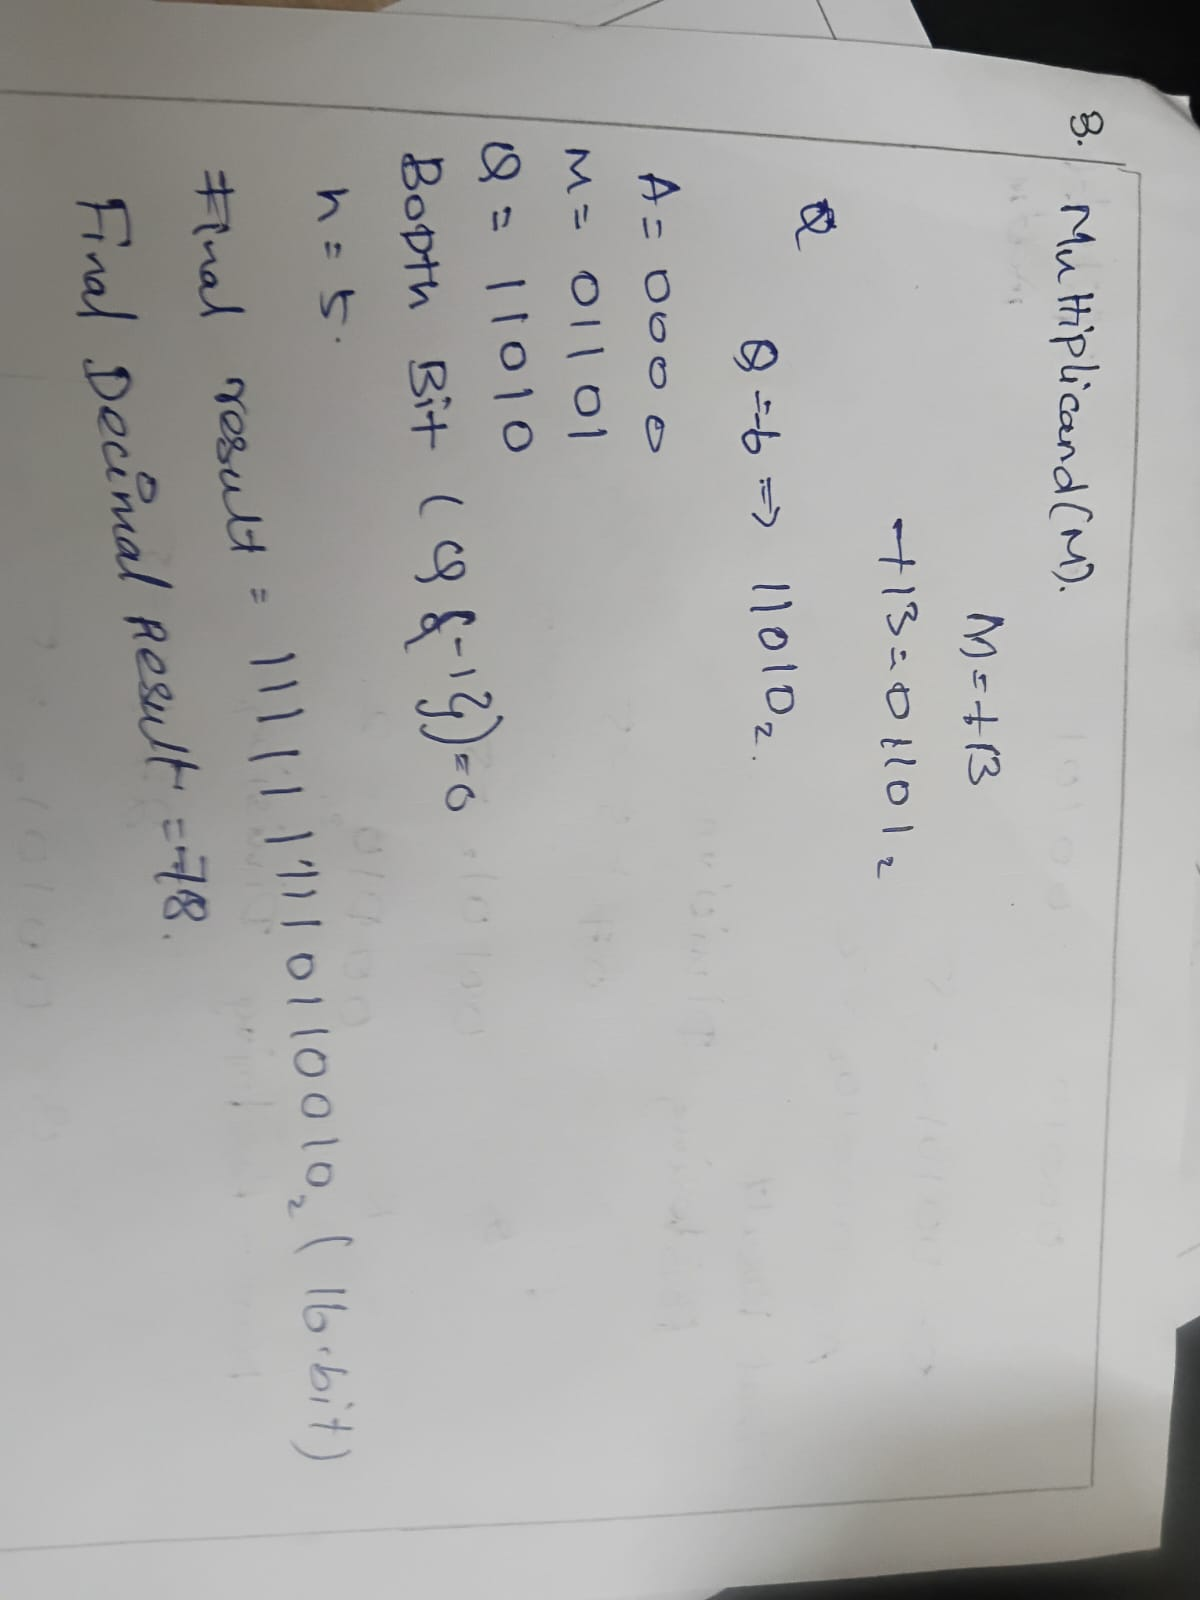 8. Multiplicand(M).
M=+13
+13=01101₂
Q=-6 => 11010₂.
A=0000
M=01101
Q=11010
Booth Bit (Q{-1})=0
n=5.
Final result = 1111111110110010₂ (16-bit)
Final Decimal Result =-78.